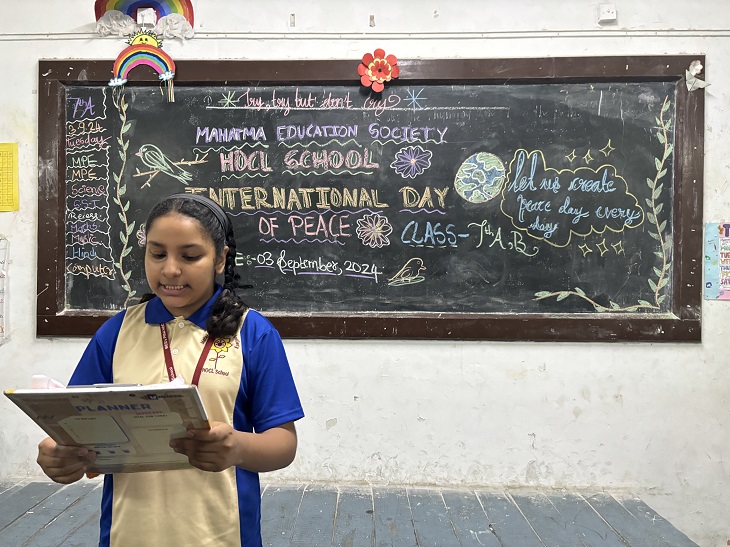 Try, try but don't cry
MAHATMA EDUCATION SOCIETY
HOCL SCHOOL
INTERNATIONAL DAY
OF PEACE
CLASS- 7th A,B
E:-03 September, 2024
Let us create
peace day every
day
7th A
3.9.24
Tuesday
MPE
MPE
Science
S.S.T
Recess
Music
Hindi
Computer
HOCL School
PLANNER